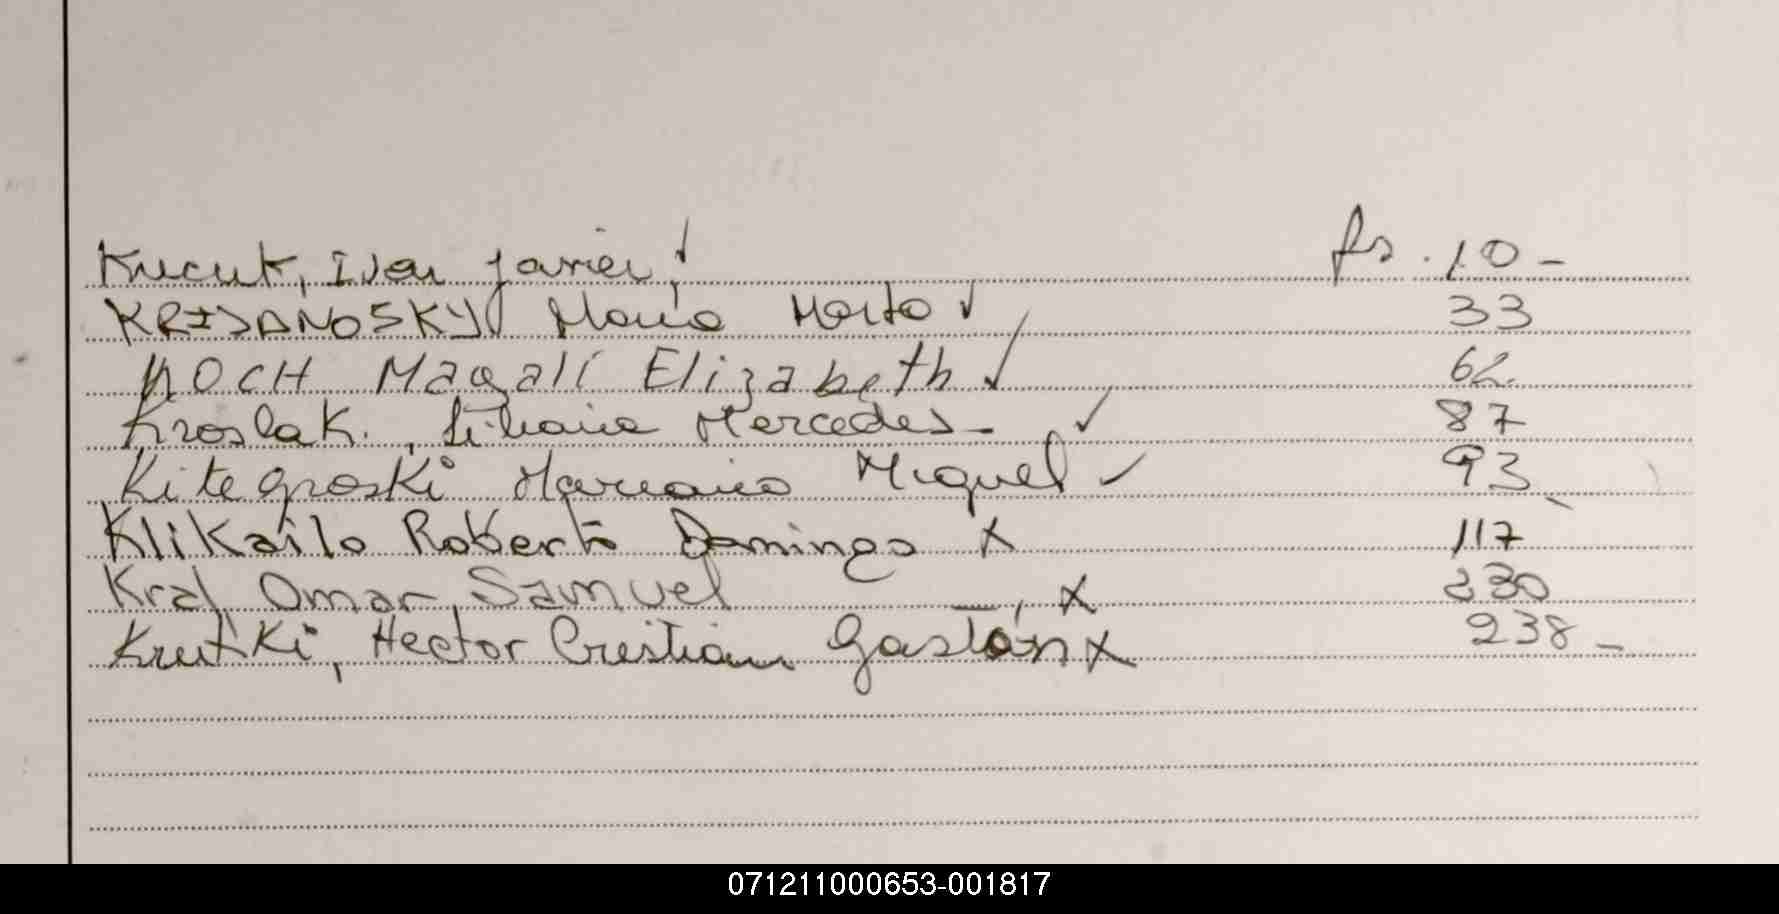 Kucuk, Ivan Javier ✓ fs. 10 -
KRISANOSKY María Marta ✓ 33
KOCH Magalí Elizabeth ✓ 62.
Kroslak, Liliana Mercedes - ✓ 87
Kitegroski Mariano Miguel ✓ 93 -
Klikailo Roberto Domingo X 117
Kral, Omar Samuel -, X 230
Krutki, Hector Cristian Gastón X 238 -
071211000653-001817